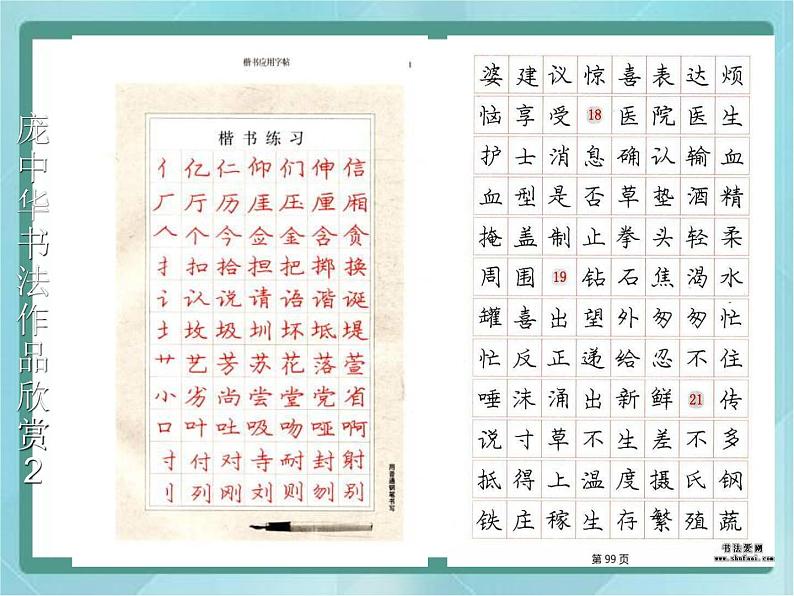 庞中华书法作品欣赏2
楷书应用字帖
1
楷书练习
亻亿仁仰们伸信
厂厅历厓压厘厢
𠆢个今佥金含贪
扌扣拾担把掷换
讠认说请语谐诞
土坟圾圳坏坻堤
艹艺芳苏花落萱
小劣尚尝堂党省
口叶吐吸吻哑啊
寸付对寺耐封射
刂列刚刘则刎别
用普通钢笔书写
婆建议惊喜表达烦
恼享受18医院医生
护士消息确认输血
血型是否草垫酒精
掩盖制止拳头轻柔
周围19钻石焦渴水
罐喜出望外匆匆忙
忙反正递给忍不住
唾沫涌出新鲜21传
说寸草不生差不多
抵得上温度摄氏钢
铁庄稼生存繁殖蔬
第99页
书法爱网
www.shufaai.com